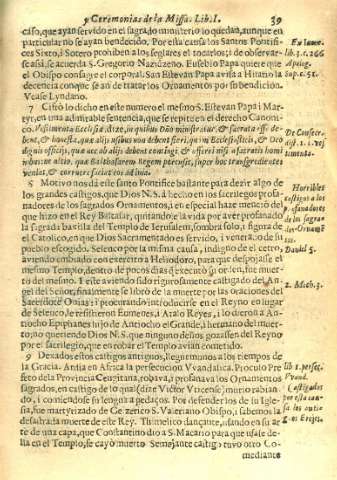 y Ceremonias de la Missa. Lib. I. 39
caso, que ayan servido en el sagrado ministerio lo quedan, aunque en
particular no se ayan bendecido. Por esta causa los Santos Pontifi-
ces Sixto, i Sotero prohiben a los seglares el tocarlos; i de observar-
se assi, se acuerda S. Gregorio Nazãzeno. Eusebio Papa quiere que
el Obispo consagre el corporal. San Estevan Papa avisa a Hilario la
decencia con que se an de tratar los Ornamentos por su bendicion.
Vease Lyndano.
7 Cifrò lo dicho en este numero el mesmo S. Estevan Papa i Mar-
tyr, en una admirable sentencia, que se repite en el derecho Canoni-
co. Vestimenta Ecclesiæ, dize, in quibus Dño ministratur, & sacrata esse de-
bent, & honesta, quæ alijs usibus non debent frui, quàm Ecclesiasticis, & Deo
dignis officijs, quæ nec ab alijs debent contingi, & offerri nisi a sacratis homi-
nibus: ne ultio, quæ Balthasarem Regem percussit, super hæc transgredientes
veniat, & corruere faciat eos ad ima.
8 Motivo nos dà este santo Pontifice bastante para dezir algo de
los grandes castigos, que Dios N. S. à hecho en los sacrilegos profa-
nadores de los sagrados Ornamentos, i en especial haze mencion del
que hizo en el Rey Baltasar, quitandole la vida por aver profanado
la sagrada baxilla del Templo de Ierusalem, sombra solo, i figura de
el Catolico, en que Dios Sacramentado es servido, i venerado de su
pueblo escogido. Seleuco por la misma causa, i indigno de el cetro
aviendo embiado con exercito a Heliodoro, para que despojasse el
mesmo Templo, dentro de pocos dias q executò su orden, fue muer-
to del mesmo. I este aviendo sido rigurosamente castigado del An-
gel del Señor, finalmente se librò de la muerte por las oraciones del
Sacerdote Onias: i procurando introducirse en el Reyno en lugar
de Seleuco, le resistieron Eumenes, i Atalo Reyes, i lo dieron a An-
tiocho Epiphanes hijo de Antiocho el Grande, i hermano del muer-
to, no queriendo Dios N. S. que ninguno destos gozassen del Reyno
por el sacrilegio, que en robar el Templo avian cometido.
9 Dexados estos castigos antiguos, lleguemonos a los tiempos de
la Gracia. Antia en Africa la persecucion Vvandalica. Proculo Pre
feto de la Provincia Ceugitana, robava, i profanava los Ornamentos
sagrados, en castigo de lo qual (dize Victor Vticense) murio rabian-
do, i comiendose su lengua a pedaços. Por defenderlos de su Igle-
sia, fue martyrizado de Gezerico S. Valeriano Obispo, i sabemos la
desastrada muerte de otro Rey. Thimelico dançante, usando en su ar-
te de una capa, que Constantino dio a S. Macario para que usasse de-
lla en el Templo, se cayò muerto. Semejante castigo tuvo otro Co-
mediante
lib. 1. c. 266
Apolog.
Sup. c. 51.
De Consecr.
Horribles
castigos a los
profanadores
de los sagra-
dos Ornamẽ
tos.
Daniel 5.
2. Mach. 3.
lib. 1. perse.
Vvand.
Castigados
por esta cau-
sa los anti-